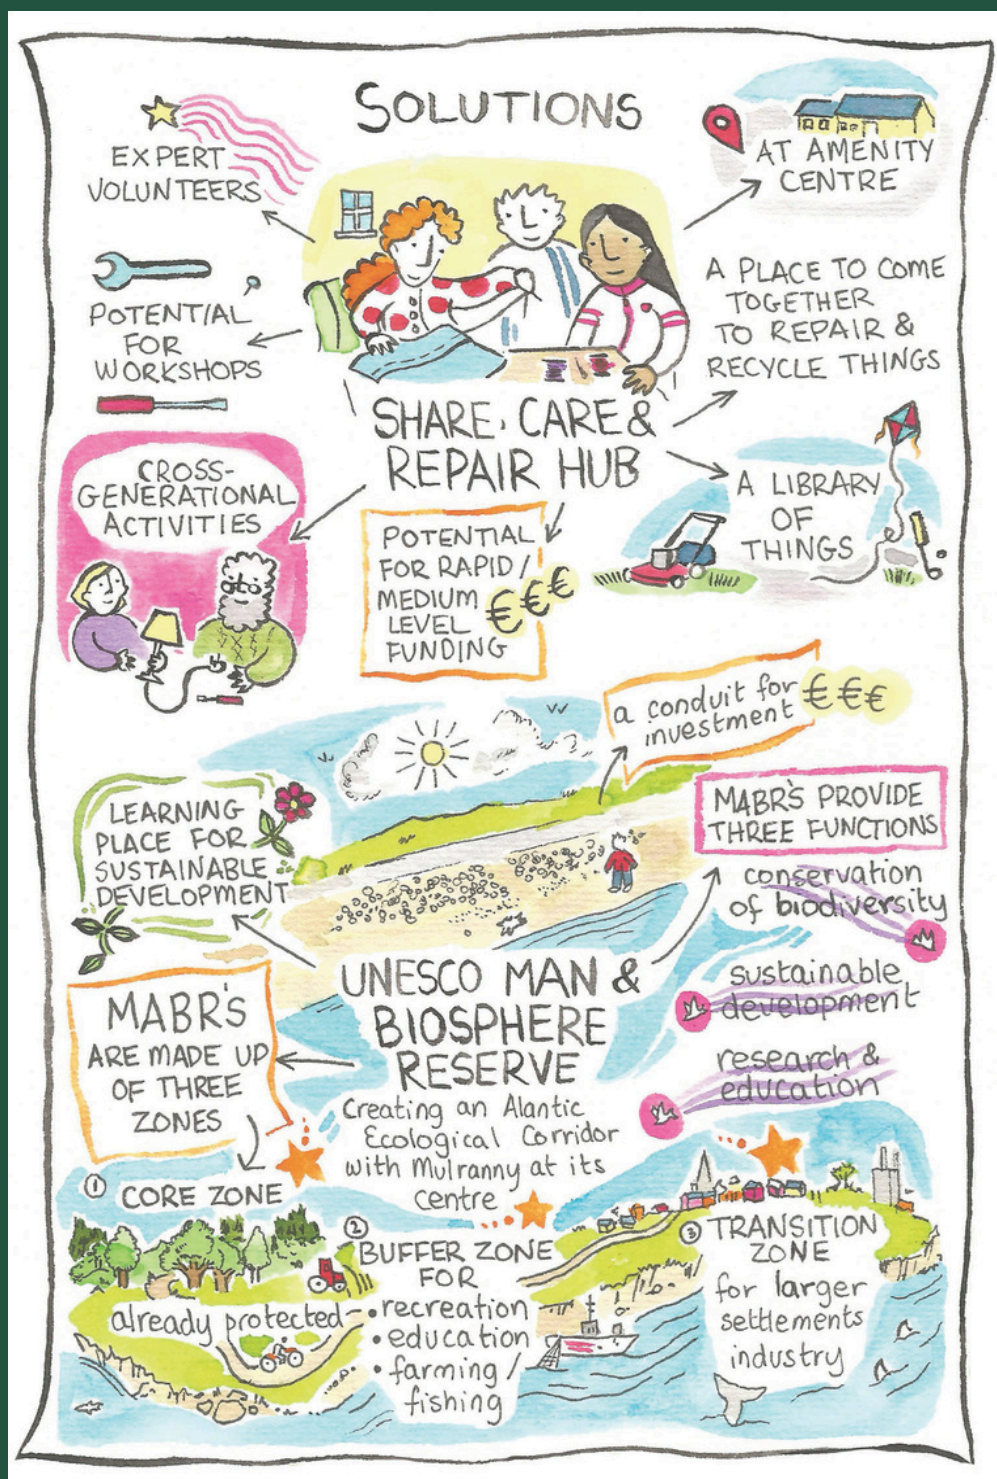 SOLUTIONS
EXPERT
VOLUNTEERS
AT AMENITY
CENTRE
POTENTIAL
FOR
WORKSHOPS
A PLACE TO COME
TOGETHER
TO REPAIR &
RECYCLE THINGS
SHARE, CARE &
REPAIR HUB
CROSS-
GENERATIONAL
ACTIVITIES
POTENTIAL
FOR RAPID /
MEDIUM
LEVEL
FUNDING
€€€
A LIBRARY
OF
THINGS
a conduit for
investment
€€€
LEARNING
PLACE FOR
SUSTAINABLE
DEVELOPMENT
MABR'S PROVIDE
THREE FUNCTIONS
conservation
of biodiversity
sustainable
development
research &
education
UNESCO MAN &
BIOSPHERE
RESERVE
Creating an Alantic
Ecological Corridor
with Mulranny at its
centre
MABR'S
ARE MADE UP
OF THREE
ZONES
① CORE ZONE
already protected
② BUFFER ZONE
FOR
• recreation
• education
• farming /
fishing
③ TRANSITION
ZONE
for larger
settlements
industry